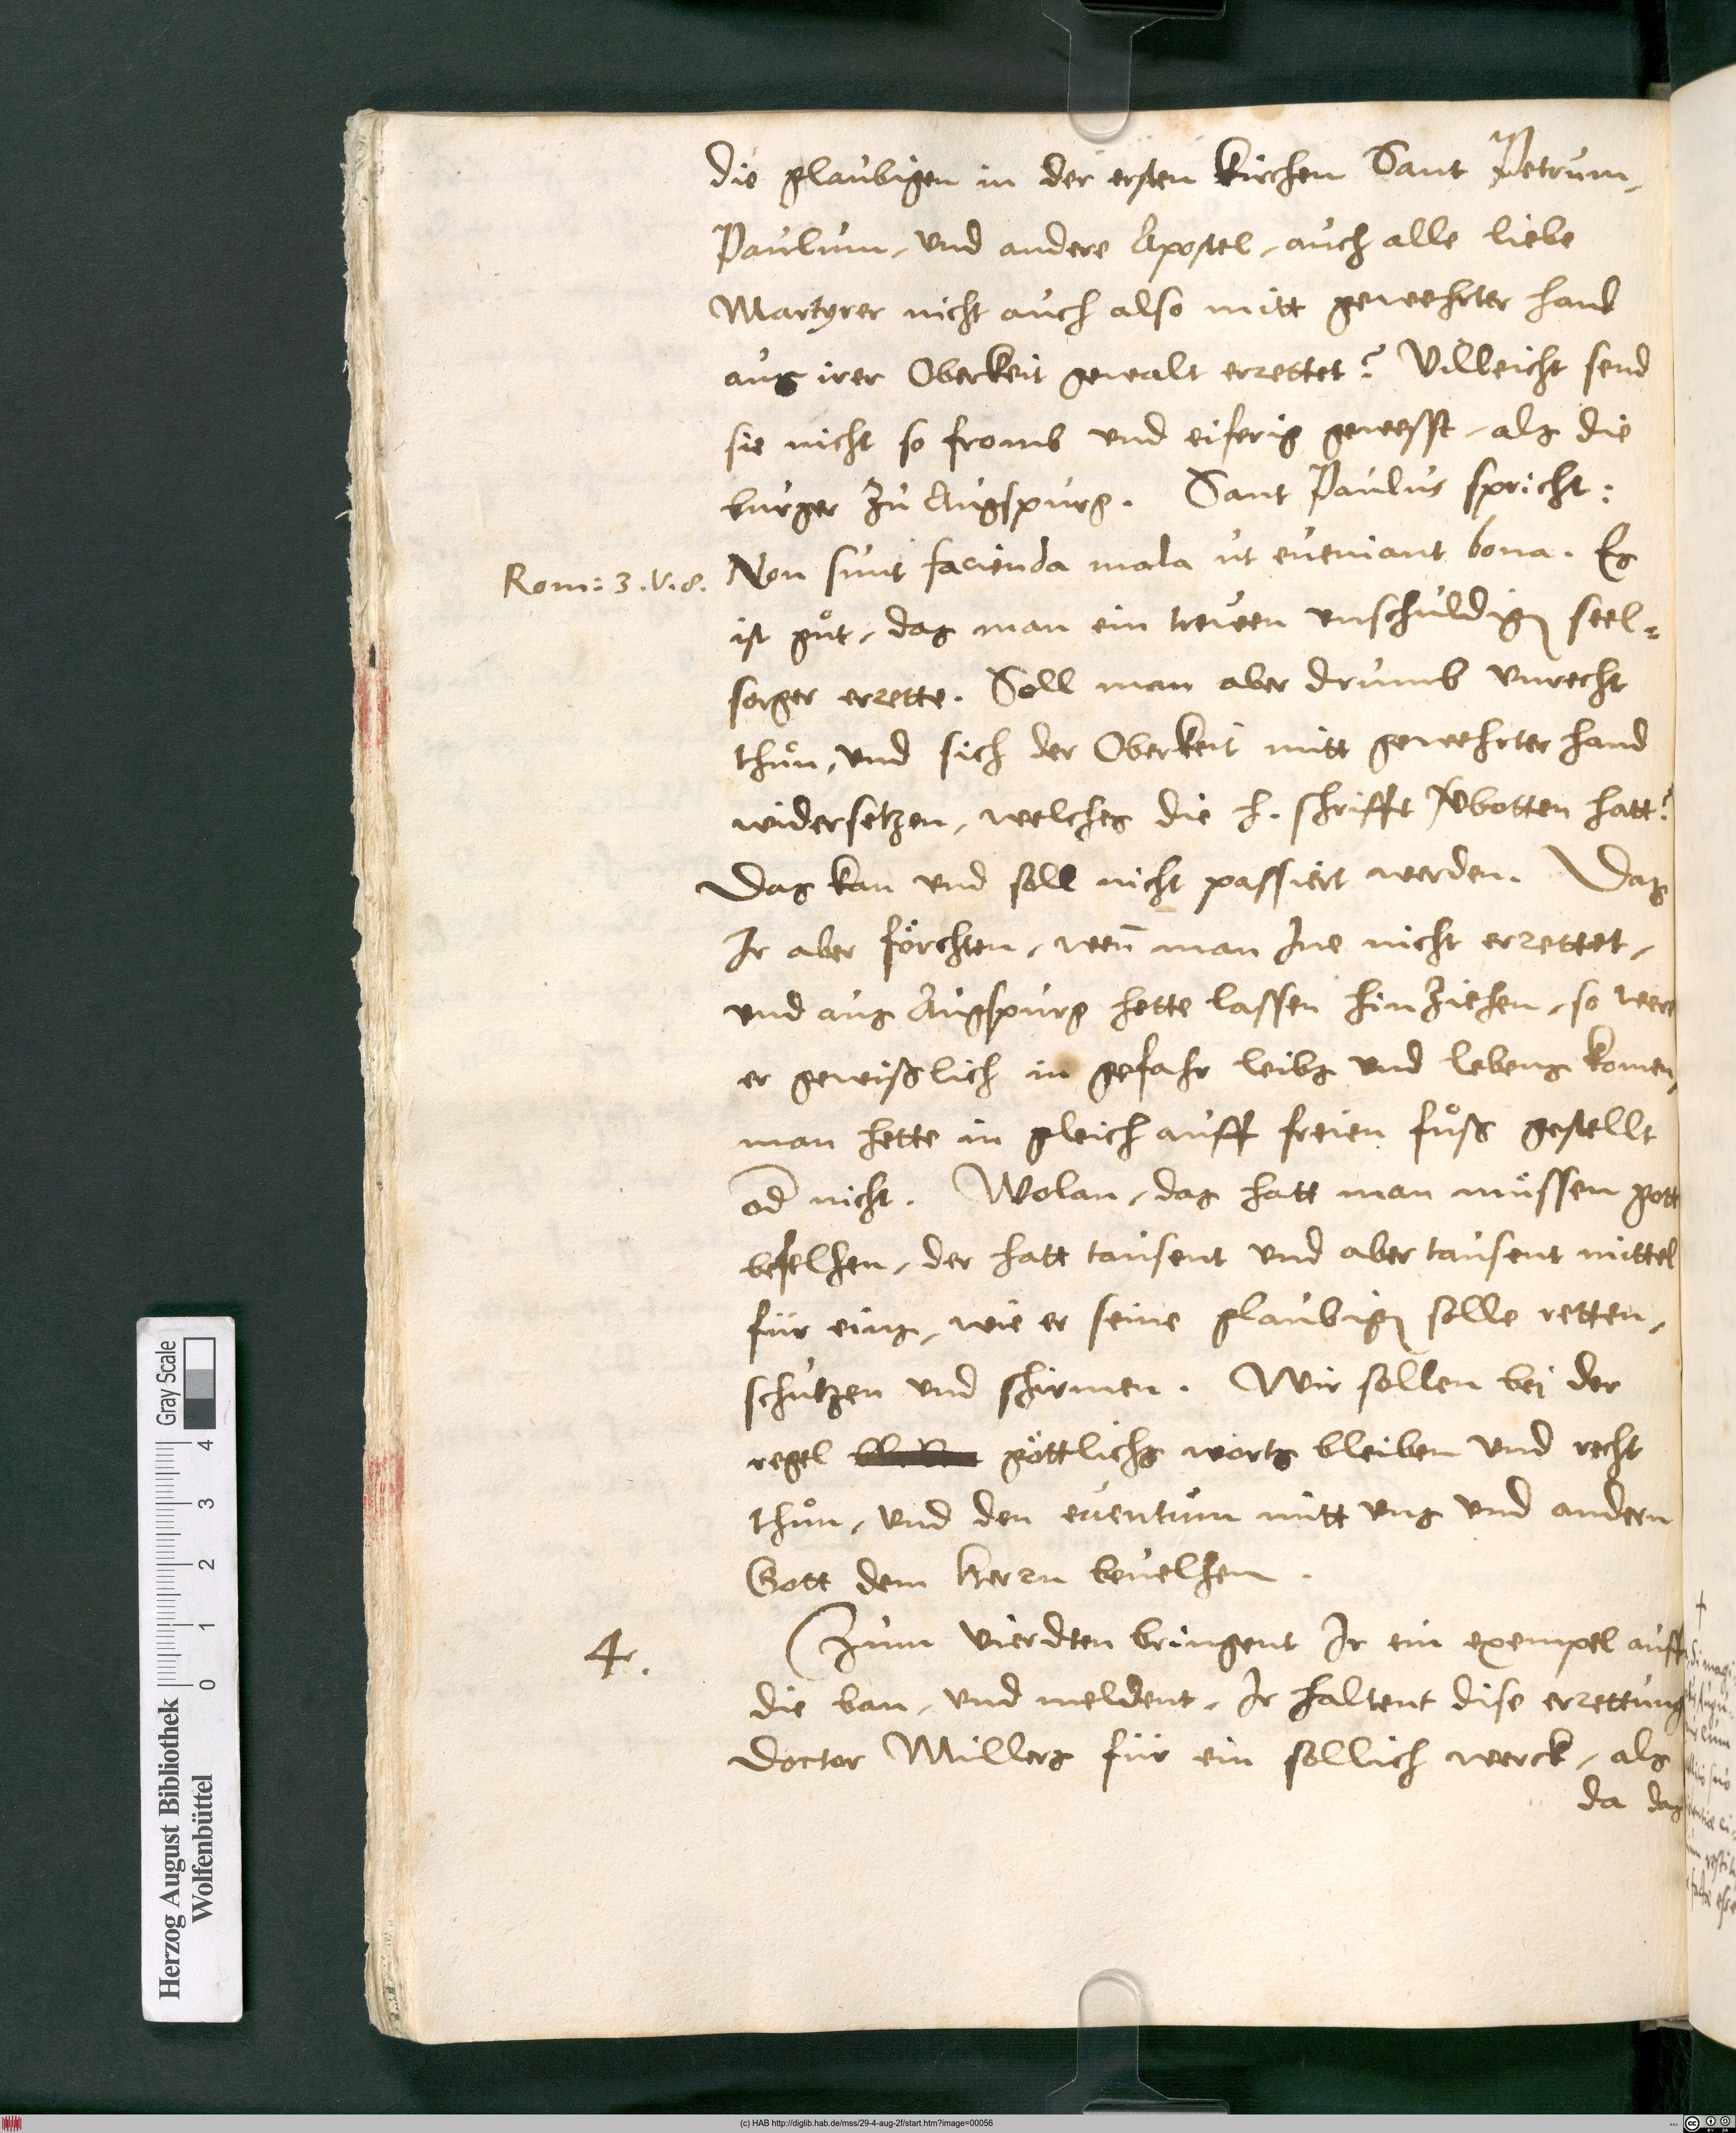 die glaubigen in der ersten kirchen Sant Petrum,
Paulum, und andere Apostel, auch alle liebe
Martyrer nicht auch also mitt gewehrter hand
aus irer Oberkeit gewalt errettet? Villeicht send
sie nicht so fromb und eiferig gewesst, als die
burger zu Augspurg. Sant Paulus spricht:
Rom: 3. v. 8. Non sunt facienda mala ut eveniant bona. Es
ist gůt, das man ein trewen unschuldigen seel=
sorger errette. Soll man aber drumb unrecht
thůn, und sich der Oberkeit mitt gewehrter hand
widersetzen, welches die h. schrifft verbotten hatt?
Das kan und soll nicht passiert werden. Das
Ir aber förchten, wen̄ man Ine nicht errettet,
und aus Augspurg hette lassen hin ziehen, so were
er gewißlich in gefahr leibs und lebens komen,
man hette in gleich auff freien fůß gestellt
od nicht. Wolan, das hatt man müssen gott
befelhen, der hatt tausent und aber tausent mittel
für eins, wie er seine glaubigen solle retten,
schutzen und schirmen. Wir sollen bei der
regel göttlichs worts bleiben und recht
thůn, und den eventum mitt uns und andern
Gott dem Herrn bevelhen.
4. Zum vierdten bringent Ir ein exempel auff
die ban, und meldent, Ir haltent dise errettung
Doctor Millers für ein sollich werck, als
da das
Herzog August Bibliothek
Wolfenbüttel
Gray Scale
0 1 2 3 4
(c) HAB http://diglib.hab.de/mss/29-4-aug-2f/start.htm?image=00056